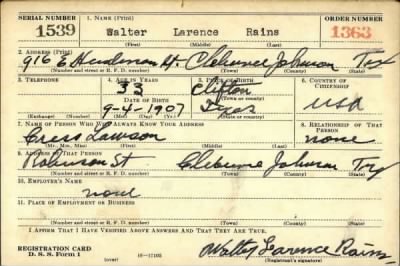 SERIAL NUMBER 1. NAME (Print) ORDER NUMBER
1539 Walter Larence Rains 1363
(First) (Middle) (Last)
2. ADDRESS (Print)
916 E Henderson St. Cleburne Johnson Tex
(Number and street or R. F. D. number) (Town) (County) (State)
3. TELEPHONE 4. AGE IN YEARS 5. PLACE OF BIRTH 6. COUNTRY OF CITIZENSHIP
33 Clifton
DATE OF BIRTH (Town or county)
9-4-1907 Texas USA
(Exchange) (Number) (Mo.) (Day) (Yr.) (State or country)
7. NAME OF PERSON WHO WILL ALWAYS KNOW YOUR ADDRESS 8. RELATIONSHIP OF THAT PERSON
Lawson none
(Mr., Mrs., Miss) (First) (Middle) (Last)
9. ADDRESS OF THAT PERSON
Robinson St Cleburne Johnson Tex
(Number and street or R. F. D. number) (Town) (County) (State)
10. EMPLOYER'S NAME
none
11. PLACE OF EMPLOYMENT OR BUSINESS
(Number and street or R. F. D. number) (Town) (County) (State)
I AFFIRM THAT I HAVE VERIFIED ABOVE ANSWERS AND THAT THEY ARE TRUE.
REGISTRATION CARD
D. S. S. Form 1 (over) 16-17105 Walter Larence Rains
(Registrant's signature)